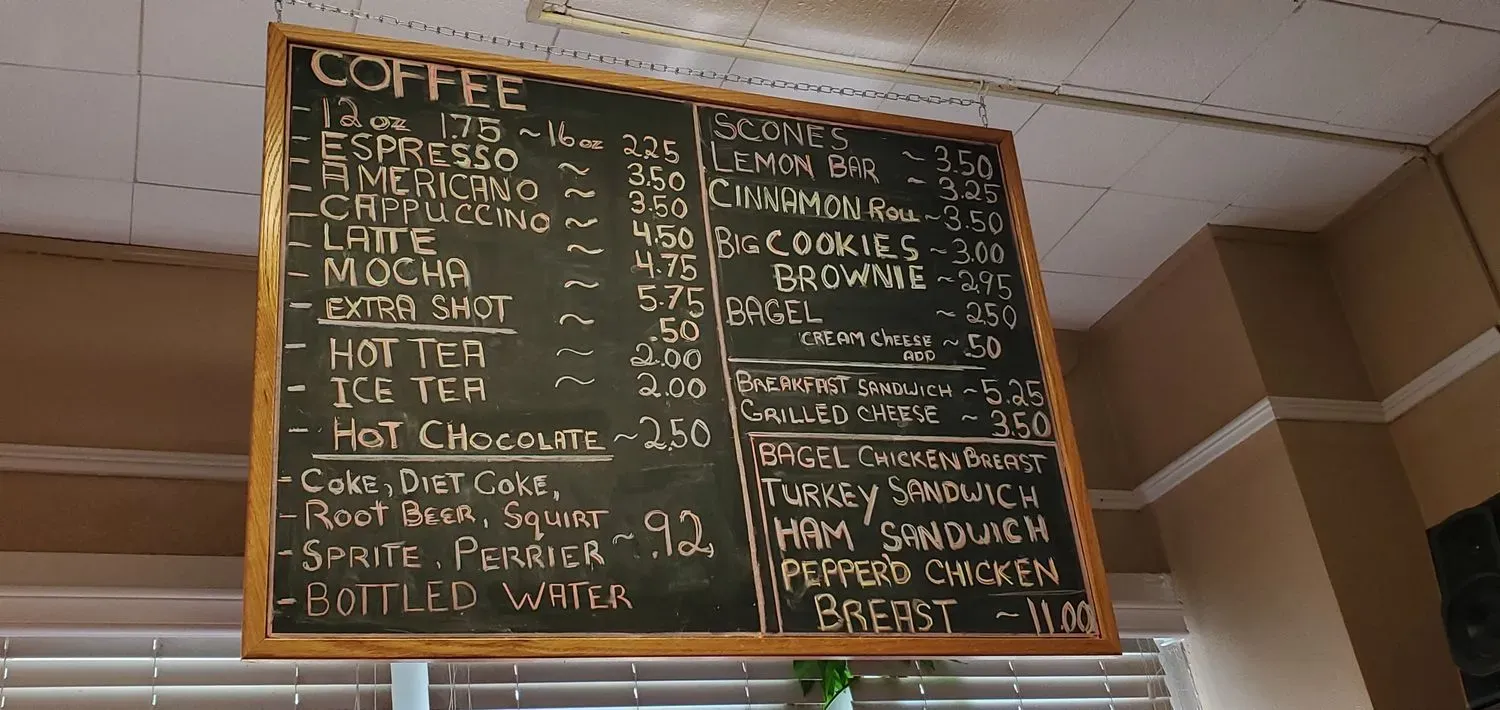 COFFEE
- 12 oz 1.75 ~ 16 oz 2.25
- ESPRESSO ~ 3.50
- AMERICANO ~ 3.50
- CAPPUCCINO ~ 4.50
- LATTE ~ 4.75
- MOCHA ~ 5.75
- EXTRA SHOT ~ .50
- HOT TEA ~ 2.00
- ICE TEA ~ 2.00
- HOT CHOCOLATE ~ 2.50
- COKE, DIET COKE,
- ROOT BEER, SQUIRT
- SPRITE, PERRIER ~ .92
- BOTTLED WATER
SCONES ~ 3.50
LEMON BAR ~ 3.25
CINNAMON ROLL ~ 3.50
BIG COOKIES ~ 3.00
BROWNIE ~ 2.95
BAGEL ~ 2.50
CREAM CHEESE ~ .50
ADD
BREAKFAST SANDWICH ~ 5.25
GRILLED CHEESE ~ 3.50
BAGEL CHICKEN BREAST
TURKEY SANDWICH
HAM SANDWICH
PEPPER'D CHICKEN
BREAST ~ 11.00